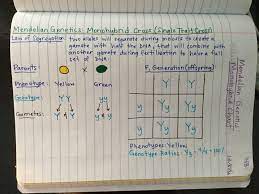 Mendelian Genetics: Monohybrid Cross (Single Trait Cross)
Law of Segregation: two alleles will separate during meiosis to create a
gamete with half the DNA, that will combine with
another gamete during fertilization to having a full
set of DNA.
Parents: X F₁ Generation (offspring)
Phenotype: Yellow Green
Genotype: YY yy
Gametes: Y Y y y
Y Y
y Yy Yy
y Yy Yy
Phenotypes: Yellow
Genotype Ratios: Yy: 4/4 = 100%
Mendelian Genetics
Monohybrid